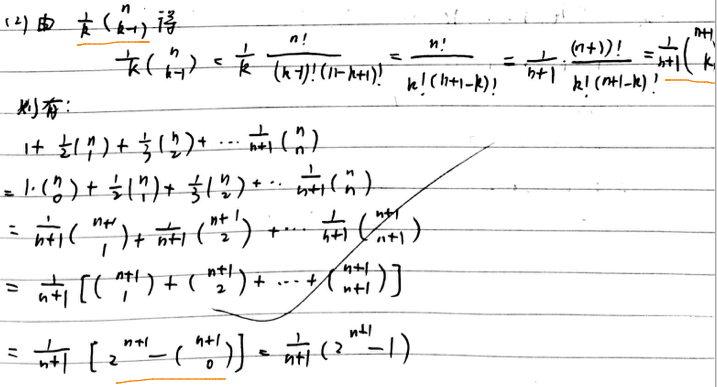 (2) 由 1/k (n k-1) 得
1/k (n k-1) = 1/k n!/((k-1)!(n-k+1)!) = n!/(k!(n+1-k)!) = 1/(n+1) · (n+1)!/(k!(n+1-k)!) = 1/(n+1) (n+1 k
则有:
1 + 1/2 (n 1) + 1/3 (n 2) + ··· 1/(n+1) (n n)
= 1·(n 0) + 1/2 (n 1) + 1/3 (n 2) + ·· 1/(n+1) (n n)
= 1/(n+1) (n+1 1) + 1/(n+1) (n+1 2) + ··· 1/(n+1) (n+1 n+1)
= 1/(n+1) [(n+1 1) + (n+1 2) + ··· + (n+1 n+1)]
= 1/(n+1) [2^(n+1) - (n+1 0)] = 1/(n+1) (2^(n+1) - 1)